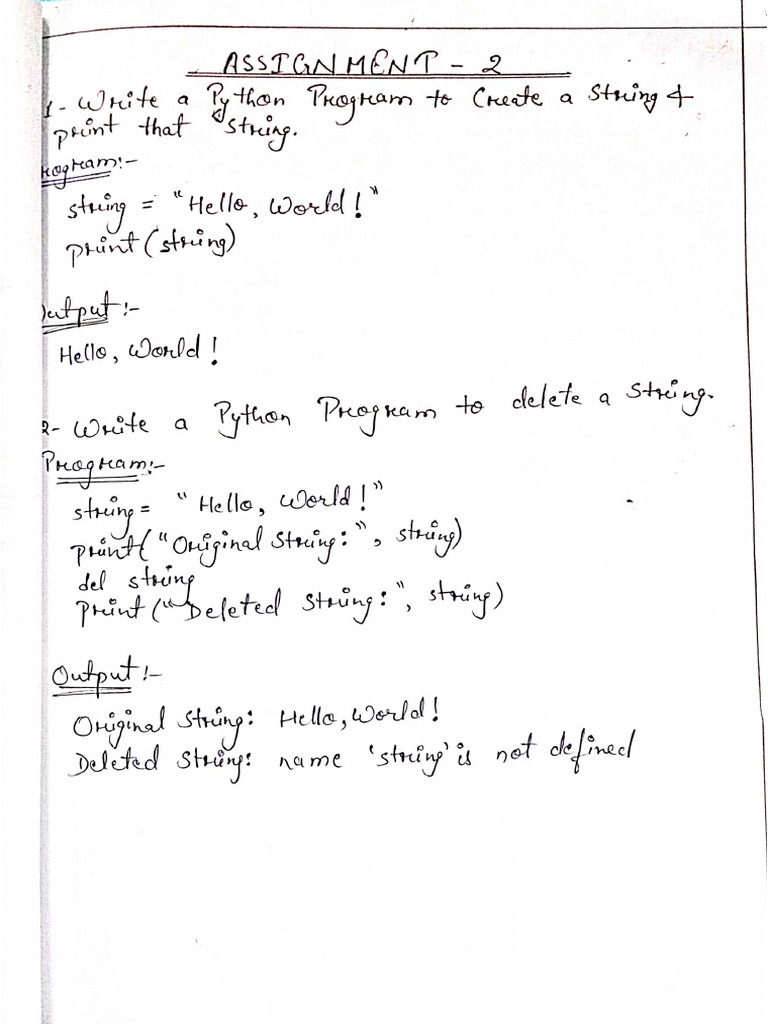 ASSIGNMENT - 2
1- Write a Python Program to Create a String &
print that string.
rogram:-
string = "Hello, World!"
print(string)
Output:-
Hello, World!
2- Write a Python Program to delete a String.
Program:-
string = "Hello, World!"
print("Original String:", string)
del string
print("Deleted String:", string)
Output:-
Original String: Hello, World!
Deleted String: name 'string' is not defined